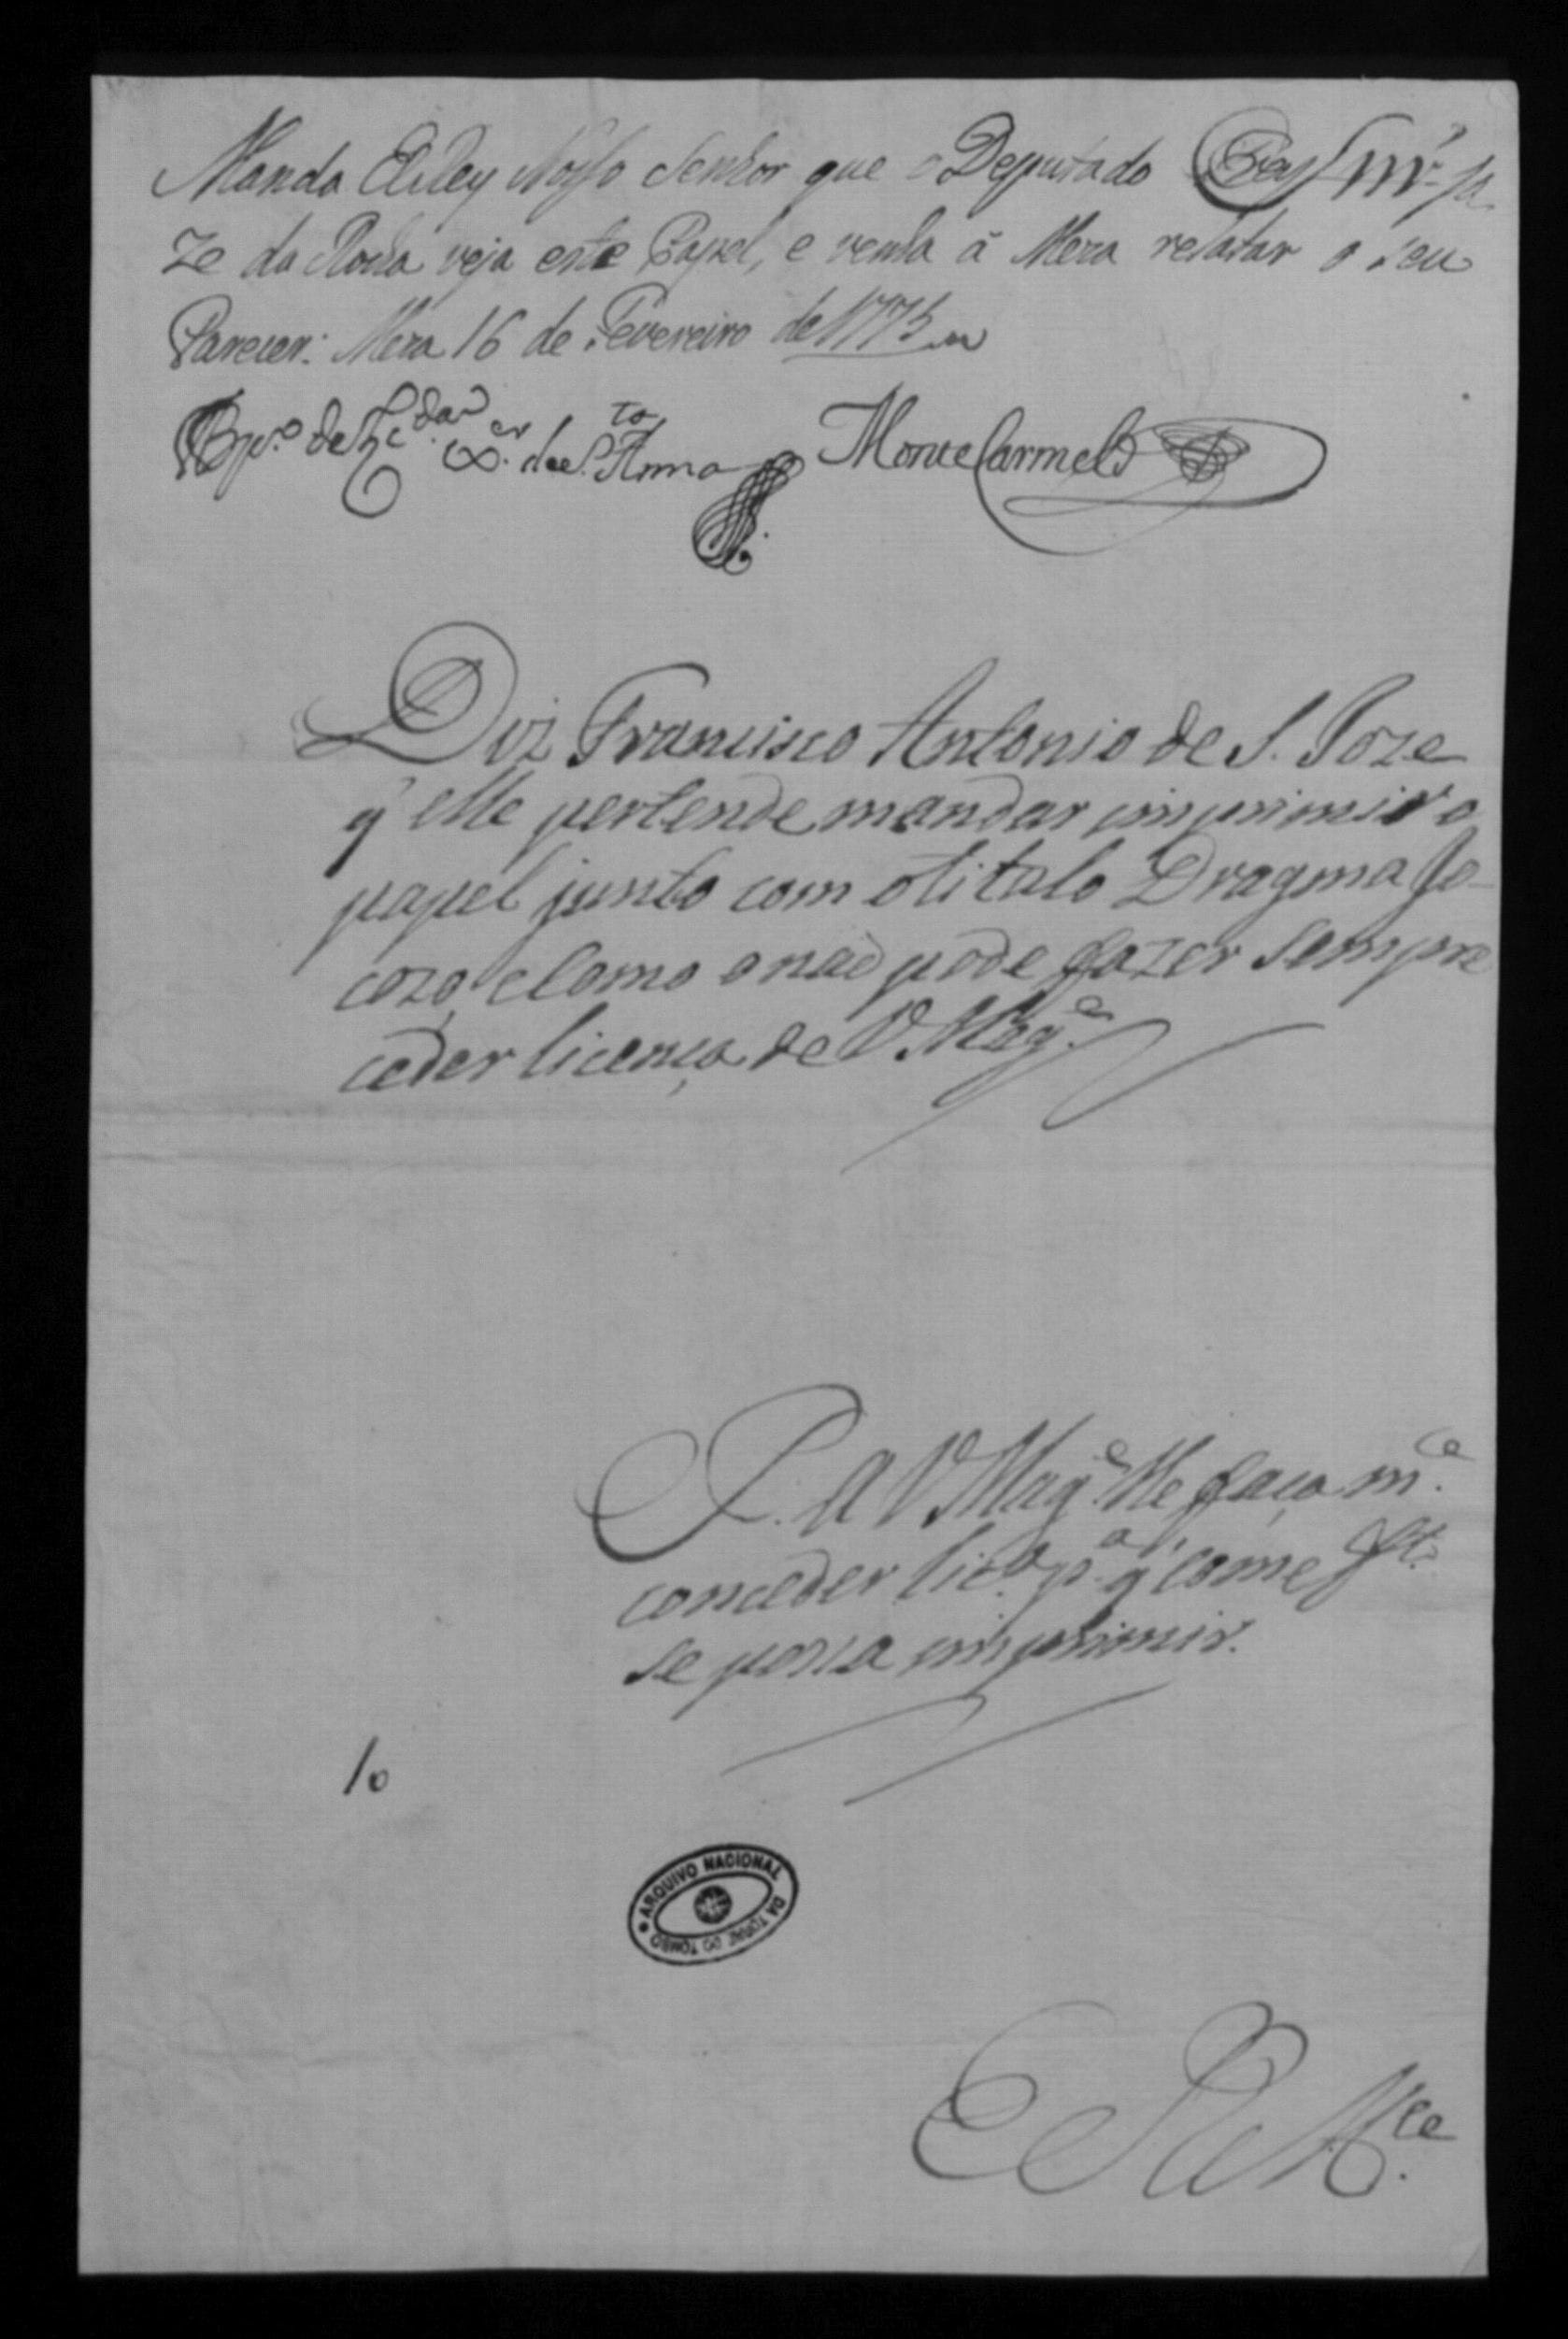 Manda ElRey Nosso Senhor que o Deputado Frey
ze da Rocha veja este Papel, e venha á Meza relatar o seu
Parecer: Meza 16 de Fevereiro de 1775
Bpo. de X.er de S.to Anna Monte Carmelo
Diz Francisco Antonio de S. Joze
q̃ elle pertende mandar imprimir o
papel junto com o titalo Dragma Jo-
cozo, e Como o naõ pode fazer Sem pre
ceder licença de V. Mag.e
P. A V. Mag.e lhe faça m.ce
conceder lic.a p.a q̃ com e
se possa imprimir.
10
ARQUIVO NACIONAL
DA TORRE DO TOMBO
E R M.ce